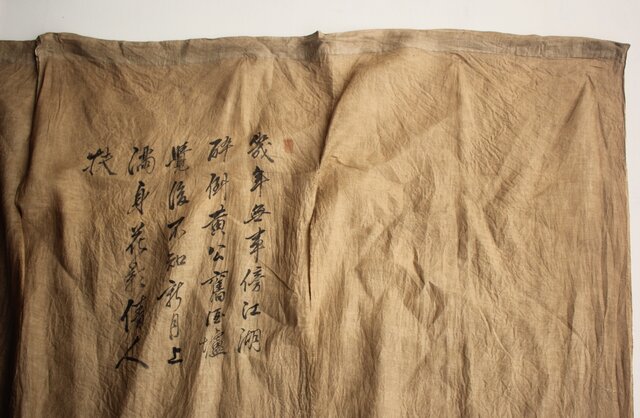 幾年無事傍江湖
醉倒黄公舊酒壚
覺後不知新月上
滿身花影倩人
扶